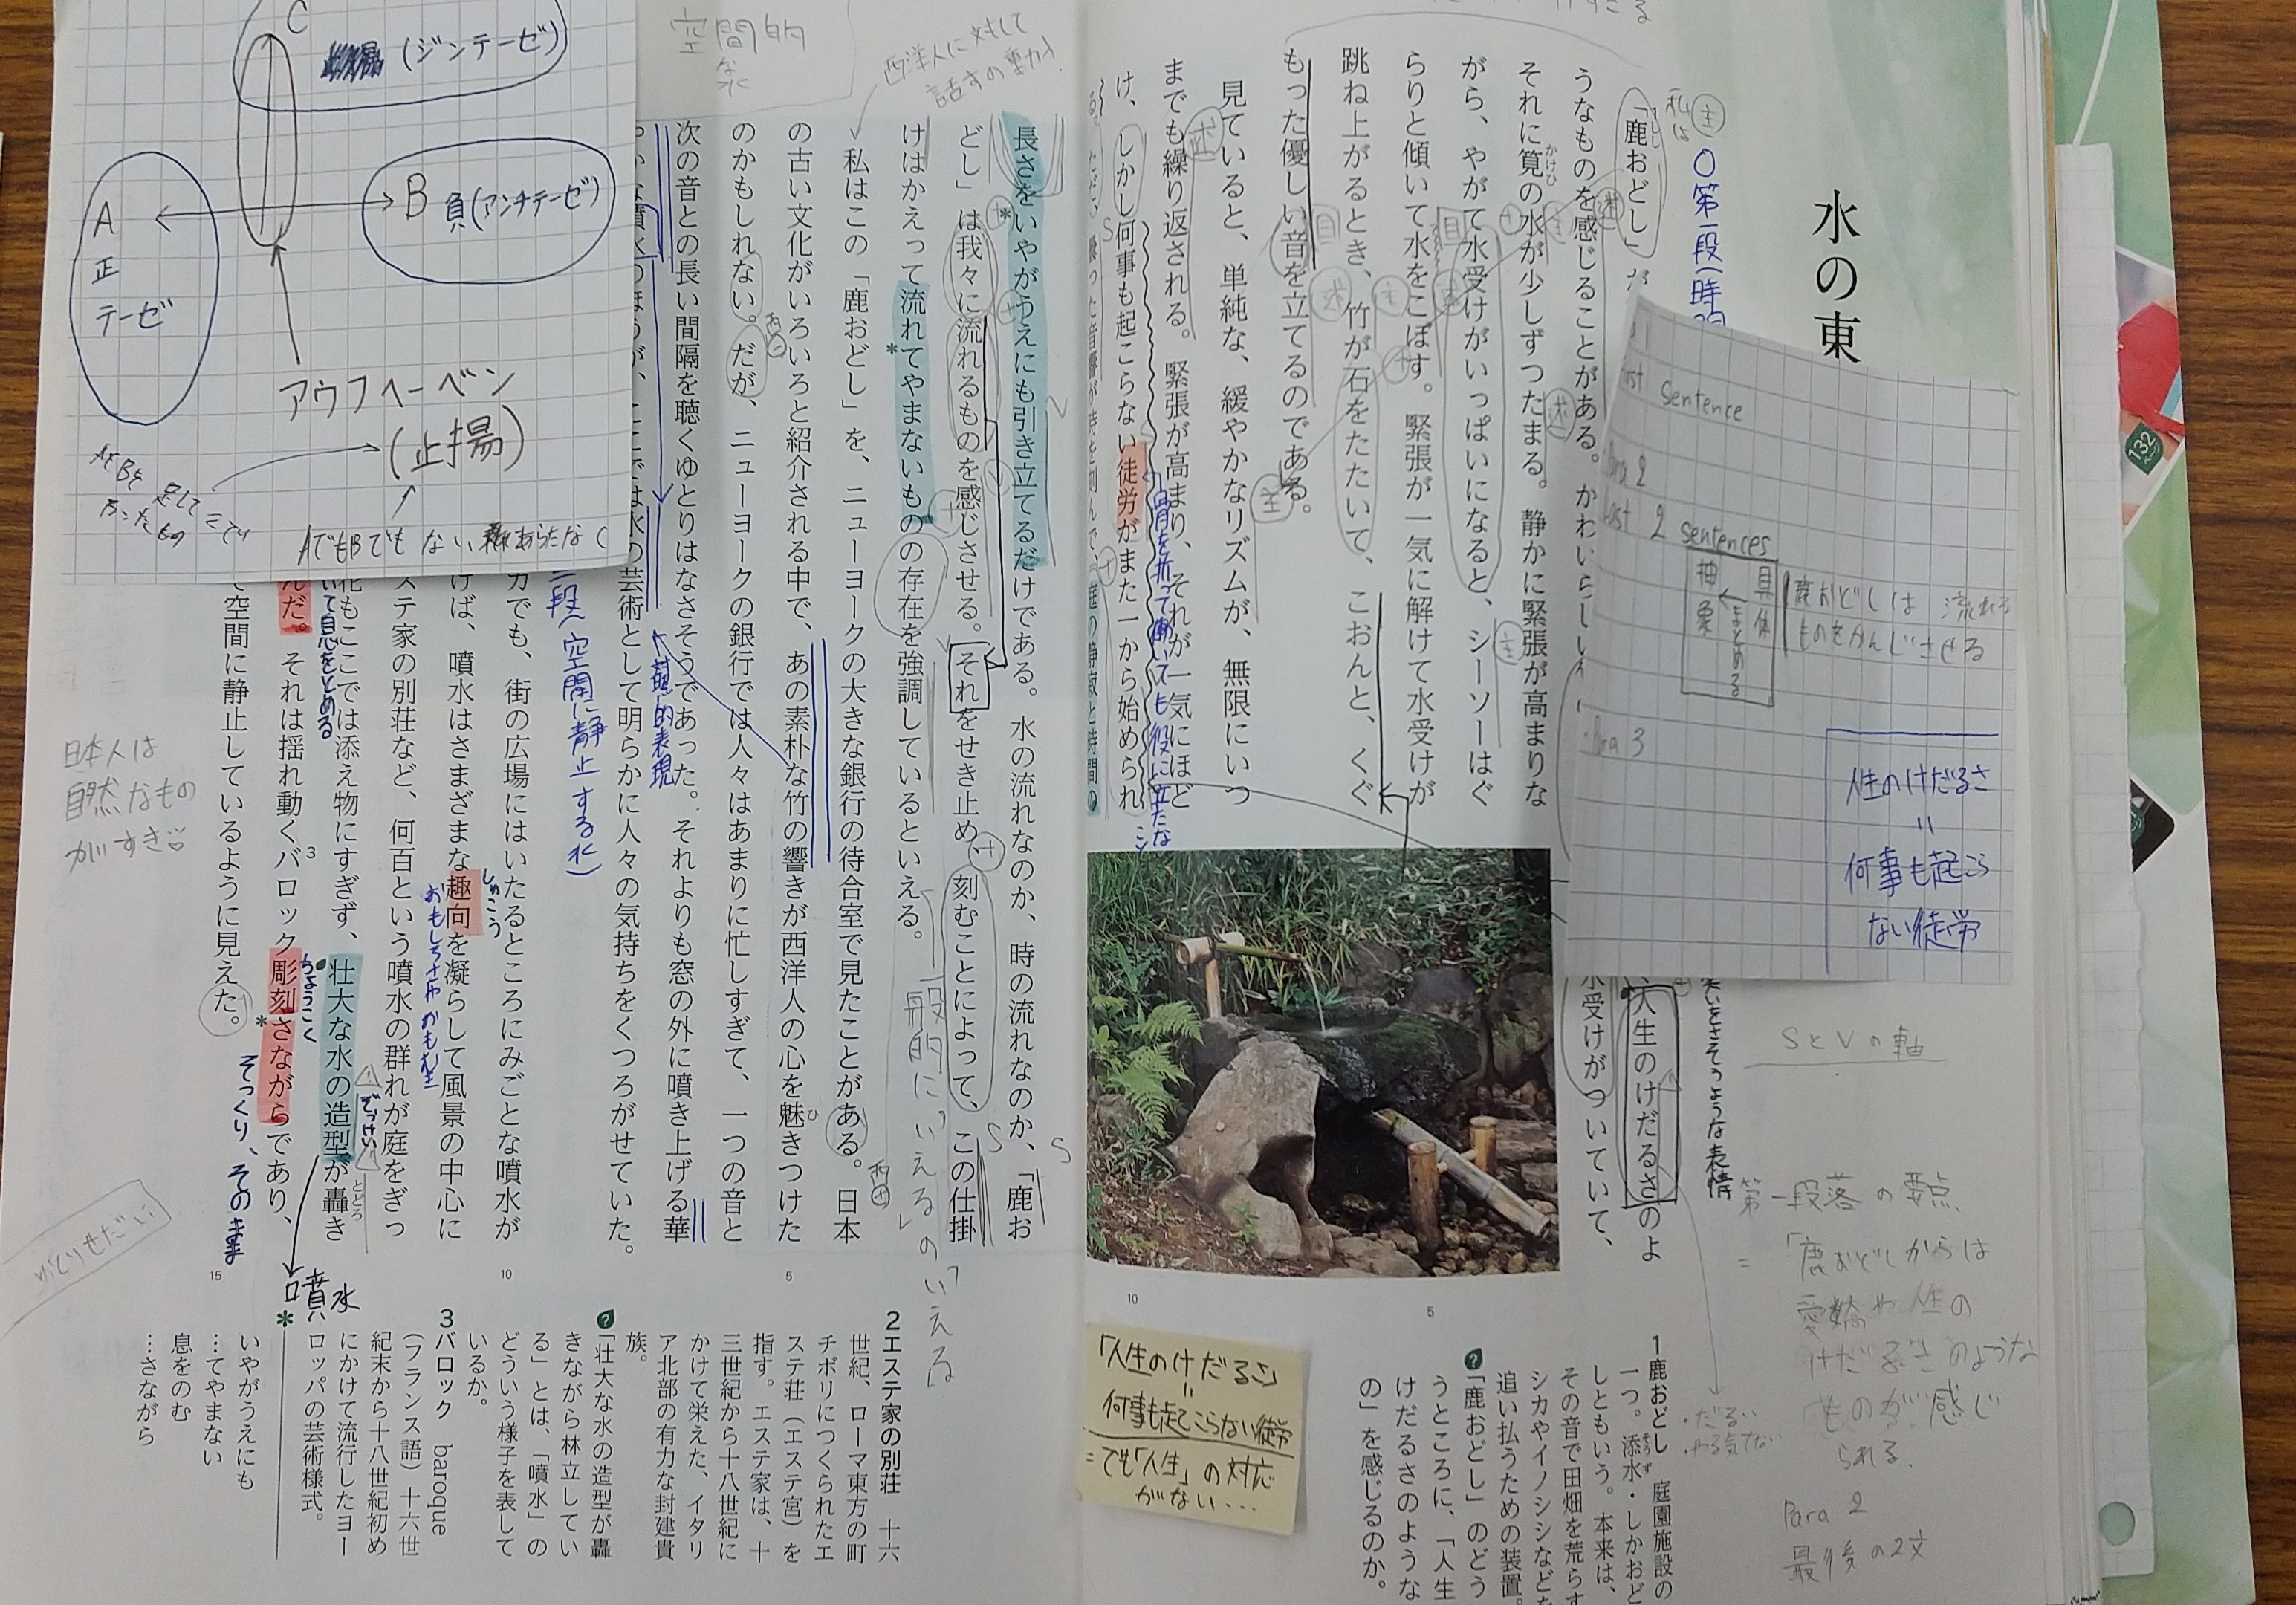 水の東
○第一段(時間
主
私は
「鹿おどし」が
人生のけだるさのよ
うなものを感じることがある。かわいらしい
水受けがついていて、
それに筧の水が少しずつたまる。静かに緊張が高まりな
かけひ
がら、やがて水受けがいっぱいになると、シーソーはぐ
らりと傾いて水をこぼす。緊張が一気に解けて水受けが
跳ね上がるとき、竹が石をたたいて、こおんと、くぐ
もった優しい音を立てるのである。
見ていると、単純な、緩やかなリズムが、無限にいつ
までも繰り返される。緊張が高まり、それが一気にほど
け、しかし何事も起こらない徒労がまた一から始められ
る。
庭の静寂と時間の
長さをいやがうえにも引き立てるだけである。水の流れなのか、時の流れなのか、「鹿お
どし」は我々に流れるものを感じさせる。それをせき止め、刻むことによって、この仕掛
けはかえって流れてやまないものの存在を強調しているといえる。
私はこの「鹿おどし」を、ニューヨークの大きな銀行の待合室で見たことがある。日本
の古い文化がいろいろと紹介される中で、あの素朴な竹の響きが西洋人の心を魅きつけた
ひ
のかもしれない。だが、ニューヨークの銀行では人々はあまりに忙しすぎて、一つの音と
次の音との長い間隔を聴くゆとりはなさそうであった。それよりも窓の外に噴き上げる華
やかな噴水のほうが、ここでは水の芸術として明らかに人々の気持ちをくつろがせていた。
力でも、街の広場にはいたるところにみごとな噴水が
けば、噴水はさまざまな趣向を凝らして風景の中心に
ステ家の別荘など、何百という噴水の群れが庭をぎっ
花もここでは添え物にすぎず、壮大な水の造型が轟き
とどろ
んだ。それは揺れ動くバロック彫刻さながらであり、
3
て空間に静止しているように見えた。
5
10
5
10
15
1鹿おどし 庭園施設の
一つ。添水・しかおど
そうず
しともいう。本来は、
その音で田畑を荒らす
シカやイノシシなどを
追い払うための装置。
「鹿おどし」のどう
いうところに、「人生
けだるさのような
の」を感じるのか。
2エステ家の別荘 十六
世紀、ローマ東方の町
チボリにつくられたエ
ステ荘(エステ宮)を
指す。エステ家は、十
三世紀から十八世紀に
かけて栄えた、イタリ
ア北部の有力な封建貴
族。
「壮大な水の造型が轟
きながら林立してい
る」とは、「噴水」の
どういう様子を表して
いるか。
3バロック baroque
(フランス語)十六世
紀末から十八世紀初め
にかけて流行したヨー
ロッパの芸術様式。
いやがうえにも
…てやまない
息をのむ
…さながら
C
(ジンテーゼ)
A
正
テーゼ
B 負(アンチテーゼ)
アウフヘーベン
(止揚)
AとBを足して二でわったもの
AでもBでもない あらたなC
空間的な水
西洋人に対して
話すの動力
対照的表現
段へ空間に静止する水)
しゅこう
おもしろさやおもむき
息をとめる
ちょうこく
ぞうけい
そっくり、そのまま
噴水
日本人は
自然なもの
がすき
一般的に「いえる」の「いえる」
sentence
Para 2
2 sentences
具体
まとめる
抽象
鹿おどしは流れる
ものをかんじさせる
Para 3
人生のけだるさ
=
何事も起こら
ない徒労
笑いをさそうような表情
SとVの軸
第一段落の要点
=「鹿おどしからは
愛嬌や人生の
けだるさのような
ものが感じ
られる。
Para 2
最後の2文
・だるい
・やる気でない
「人生のけだるさ」
=
何事も起こらない徒労
=でも「人生」の対応
がない…
132
ページ